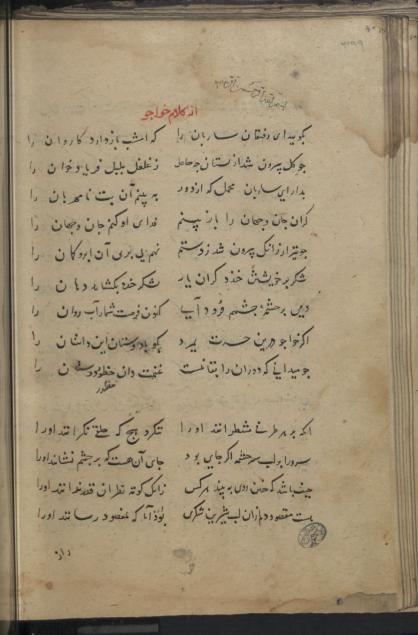 از کلام خواجو
بگویید ای رفیقان ساربان را که امشب باز دارد کاروان را
چو گل بیرون شد از بستان چه حاصل ز غلغل بلبل فریاد خوان را
بدار ای ساربان محمل که از دور به بینم آن بت نامهربان را
گر آن جان و جهان را باز بینم فدای او کنم جان و جهان را
چو تیر ار زانک بیرون شد ز دستم نهم پی بر پی آن ابروکمان را
شکر بر خویشتن خندد گر آن یار شکر خنده بگشاید دهان را
درین بر چشمه چشمم فرود آی کنون فرصت شمار آب روان را
اگر خواجو درین حسرت بمیرد بگو با دوستان این داستان را
چو میدانی که دوران را بقا نیست غنیمت دان حضور دوستان را
آنکه بر هر طرفی منتظرانند او را ننگرد هیچ که خلقی نگرانند او را
سرو را بر لب سرچشمه اگر جای بود جای آن هست که بر چشم نشانند او را
حیف باشد که چنین روی به بیند هر کس زانک کوته نظران قدر ندانند او را
هست مقصود دلم زان لب شیرین شکری بود آیا که بمقصود رسانند او را